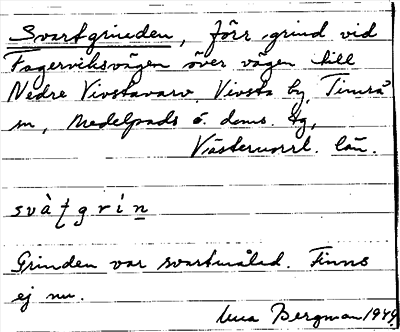 Svartgrinden, förr grind vid
Fagerviksvägen över vägen till
Nedre Vivstavarv. Vivsta by, Timrå
sn, Medelpads ö. doms. tg,
Västernorrl. län.
svàʈgrìn
Grinden var svartmålad. Finns
ej nu.
Bergman 1949